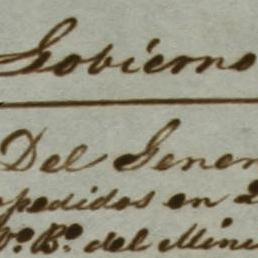 Gobierno
Del Gener
xpedidos en 2
Vº Bº del Mini